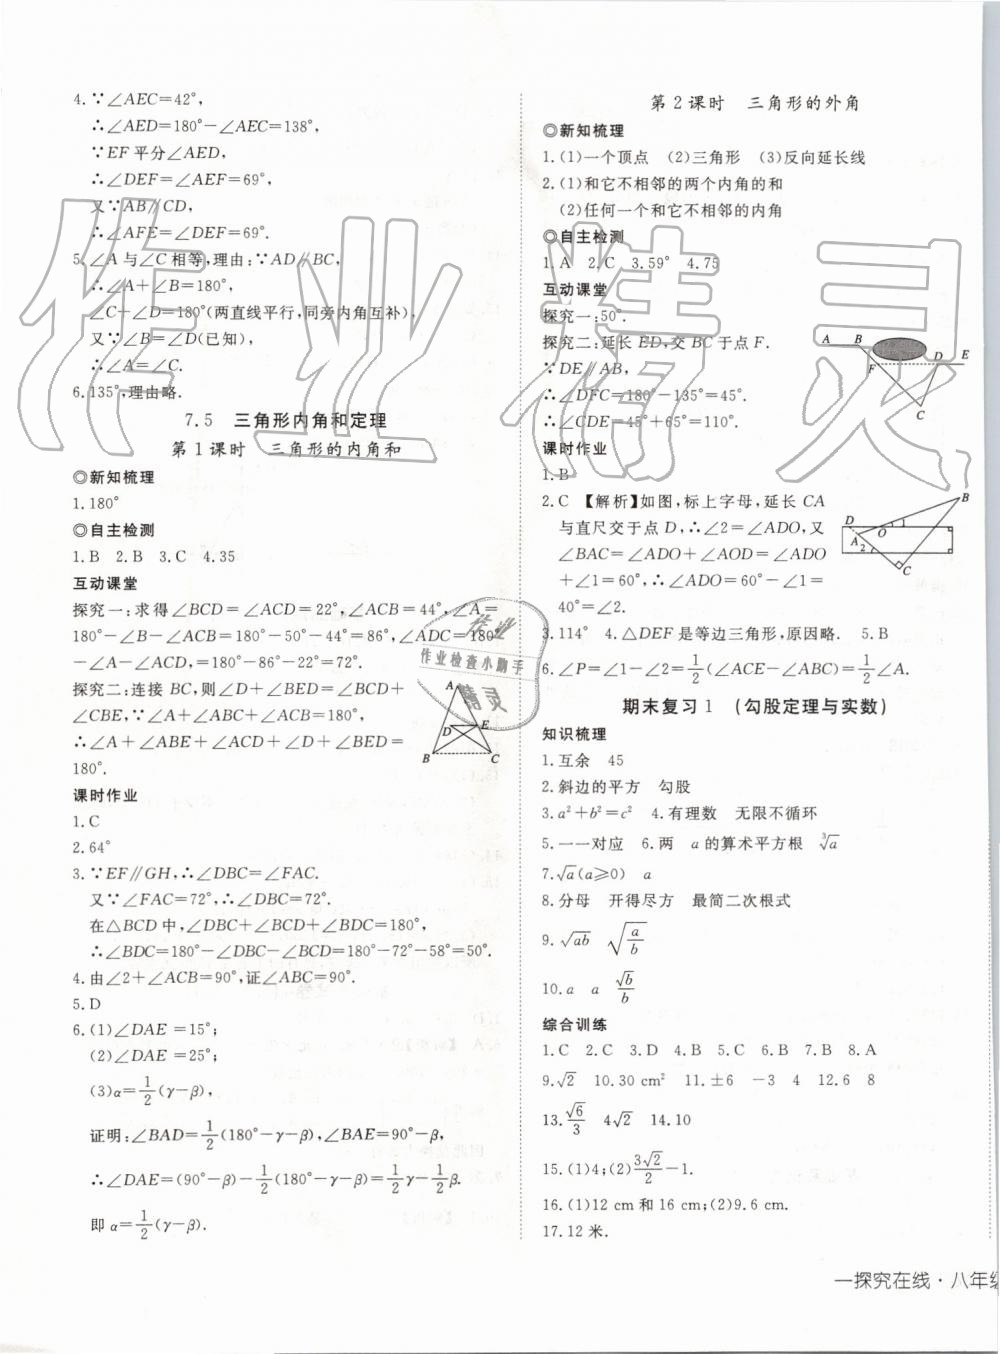 4.∵∠AEC=42°,
∴∠AED=180°-∠AEC=138°,
∵EF平分∠AED,
∴∠DEF=∠AEF=69°,
又∵AB∥CD,
∴∠AFE=∠DEF=69°.
5.∠A与∠C相等,理由:∵AD∥BC,
∴∠A+∠B=180°,
∠C+∠D=180°(两直线平行,同旁内角互补),
又∵∠B=∠D(已知),
∴∠A=∠C.
6.135°,理由略.
7.5 三角形内角和定理
第1课时 三角形的内角和
◎新知梳理
1.180°
◎自主检测
1.B 2.B 3.C 4.35
互动课堂
探究一:求得∠BCD=∠ACD=22°,∠ACB=44°,∠A=
180°-∠B-∠ACB=180°-50°-44°=86°,∠ADC=180°
-∠A-∠ACD=180°-86°-22°=72°.
探究二:连接BC,则∠D+∠BED=∠BCD+
∠CBE,∵∠A+∠ABC+∠ACB=180°,
∴∠A+∠ABE+∠ACD+∠D+∠BED=
180°.
A
D E
B C
课时作业
1.C
2.64°
3.∵EF∥GH,∴∠DBC=∠FAC.
又∵∠FAC=72°,∴∠DBC=72°.
在△BCD中,∠DBC+∠BCD+∠BDC=180°,
∴∠BDC=180°-∠DBC-∠BCD=180°-72°-58°=50°.
4.由∠2+∠ACB=90°,证∠ABC=90°.
5.D
6.(1)∠DAE=15°;
(2)∠DAE=25°;
(3)α=1/2(γ-β),
证明:∠BAD=1/2(180°-γ-β),∠BAE=90°-β,
∴∠DAE=(90°-β)-1/2(180°-γ-β)=1/2γ-1/2β.
即α=1/2(γ-β).
第2课时 三角形的外角
◎新知梳理
1.(1)一个顶点 (2)三角形 (3)反向延长线
2.(1)和它不相邻的两个内角的和
(2)任何一个和它不相邻的内角
◎自主检测
1.A 2.C 3.59° 4.75
互动课堂
探究一:50°.
探究二:延长ED,交BC于点F.
∵DE∥AB,
∴∠DFC=180°-135°=45°.
∴∠CDE=45°+65°=110°.
A B D E
F
C
课时作业
1.B
2.C 【解析】如图,标上字母,延长CA
与直尺交于点D,∴∠2=∠ADO,又
∠BAC=∠ADO+∠AOD=∠ADO
+∠1=60°,∴∠ADO=60°-∠1=
40°=∠2.
B
D O
A 2
C
3.114° 4.△DEF是等边三角形,原因略. 5.B
6.∠P=∠1-∠2=1/2(∠ACE-∠ABC)=1/2∠A.
期末复习1 (勾股定理与实数)
知识梳理
1.互余 45
2.斜边的平方 勾股
3.a²+b²=c² 4.有理数 无限不循环
5.一一对应 6.两 a的算术平方根 ∛a
7.√a(a≥0) a
8.分母 开得尽方 最简二次根式
9.√ab √(a/b)
10.a a √b/b
综合训练
1.C 2.C 3.D 4.B 5.C 6.B 7.B 8.A
9.√2 10.30 cm² 11.±6 -3 4 12.6 8
13.√6/3 4√2 14.10
15.(1)4;(2)3√2/2-1.
16.(1)12 cm和16 cm;(2)9.6 cm.
17.12米.
一探究在线·八年级
作业精灵
作业
作业检查小助手
精灵